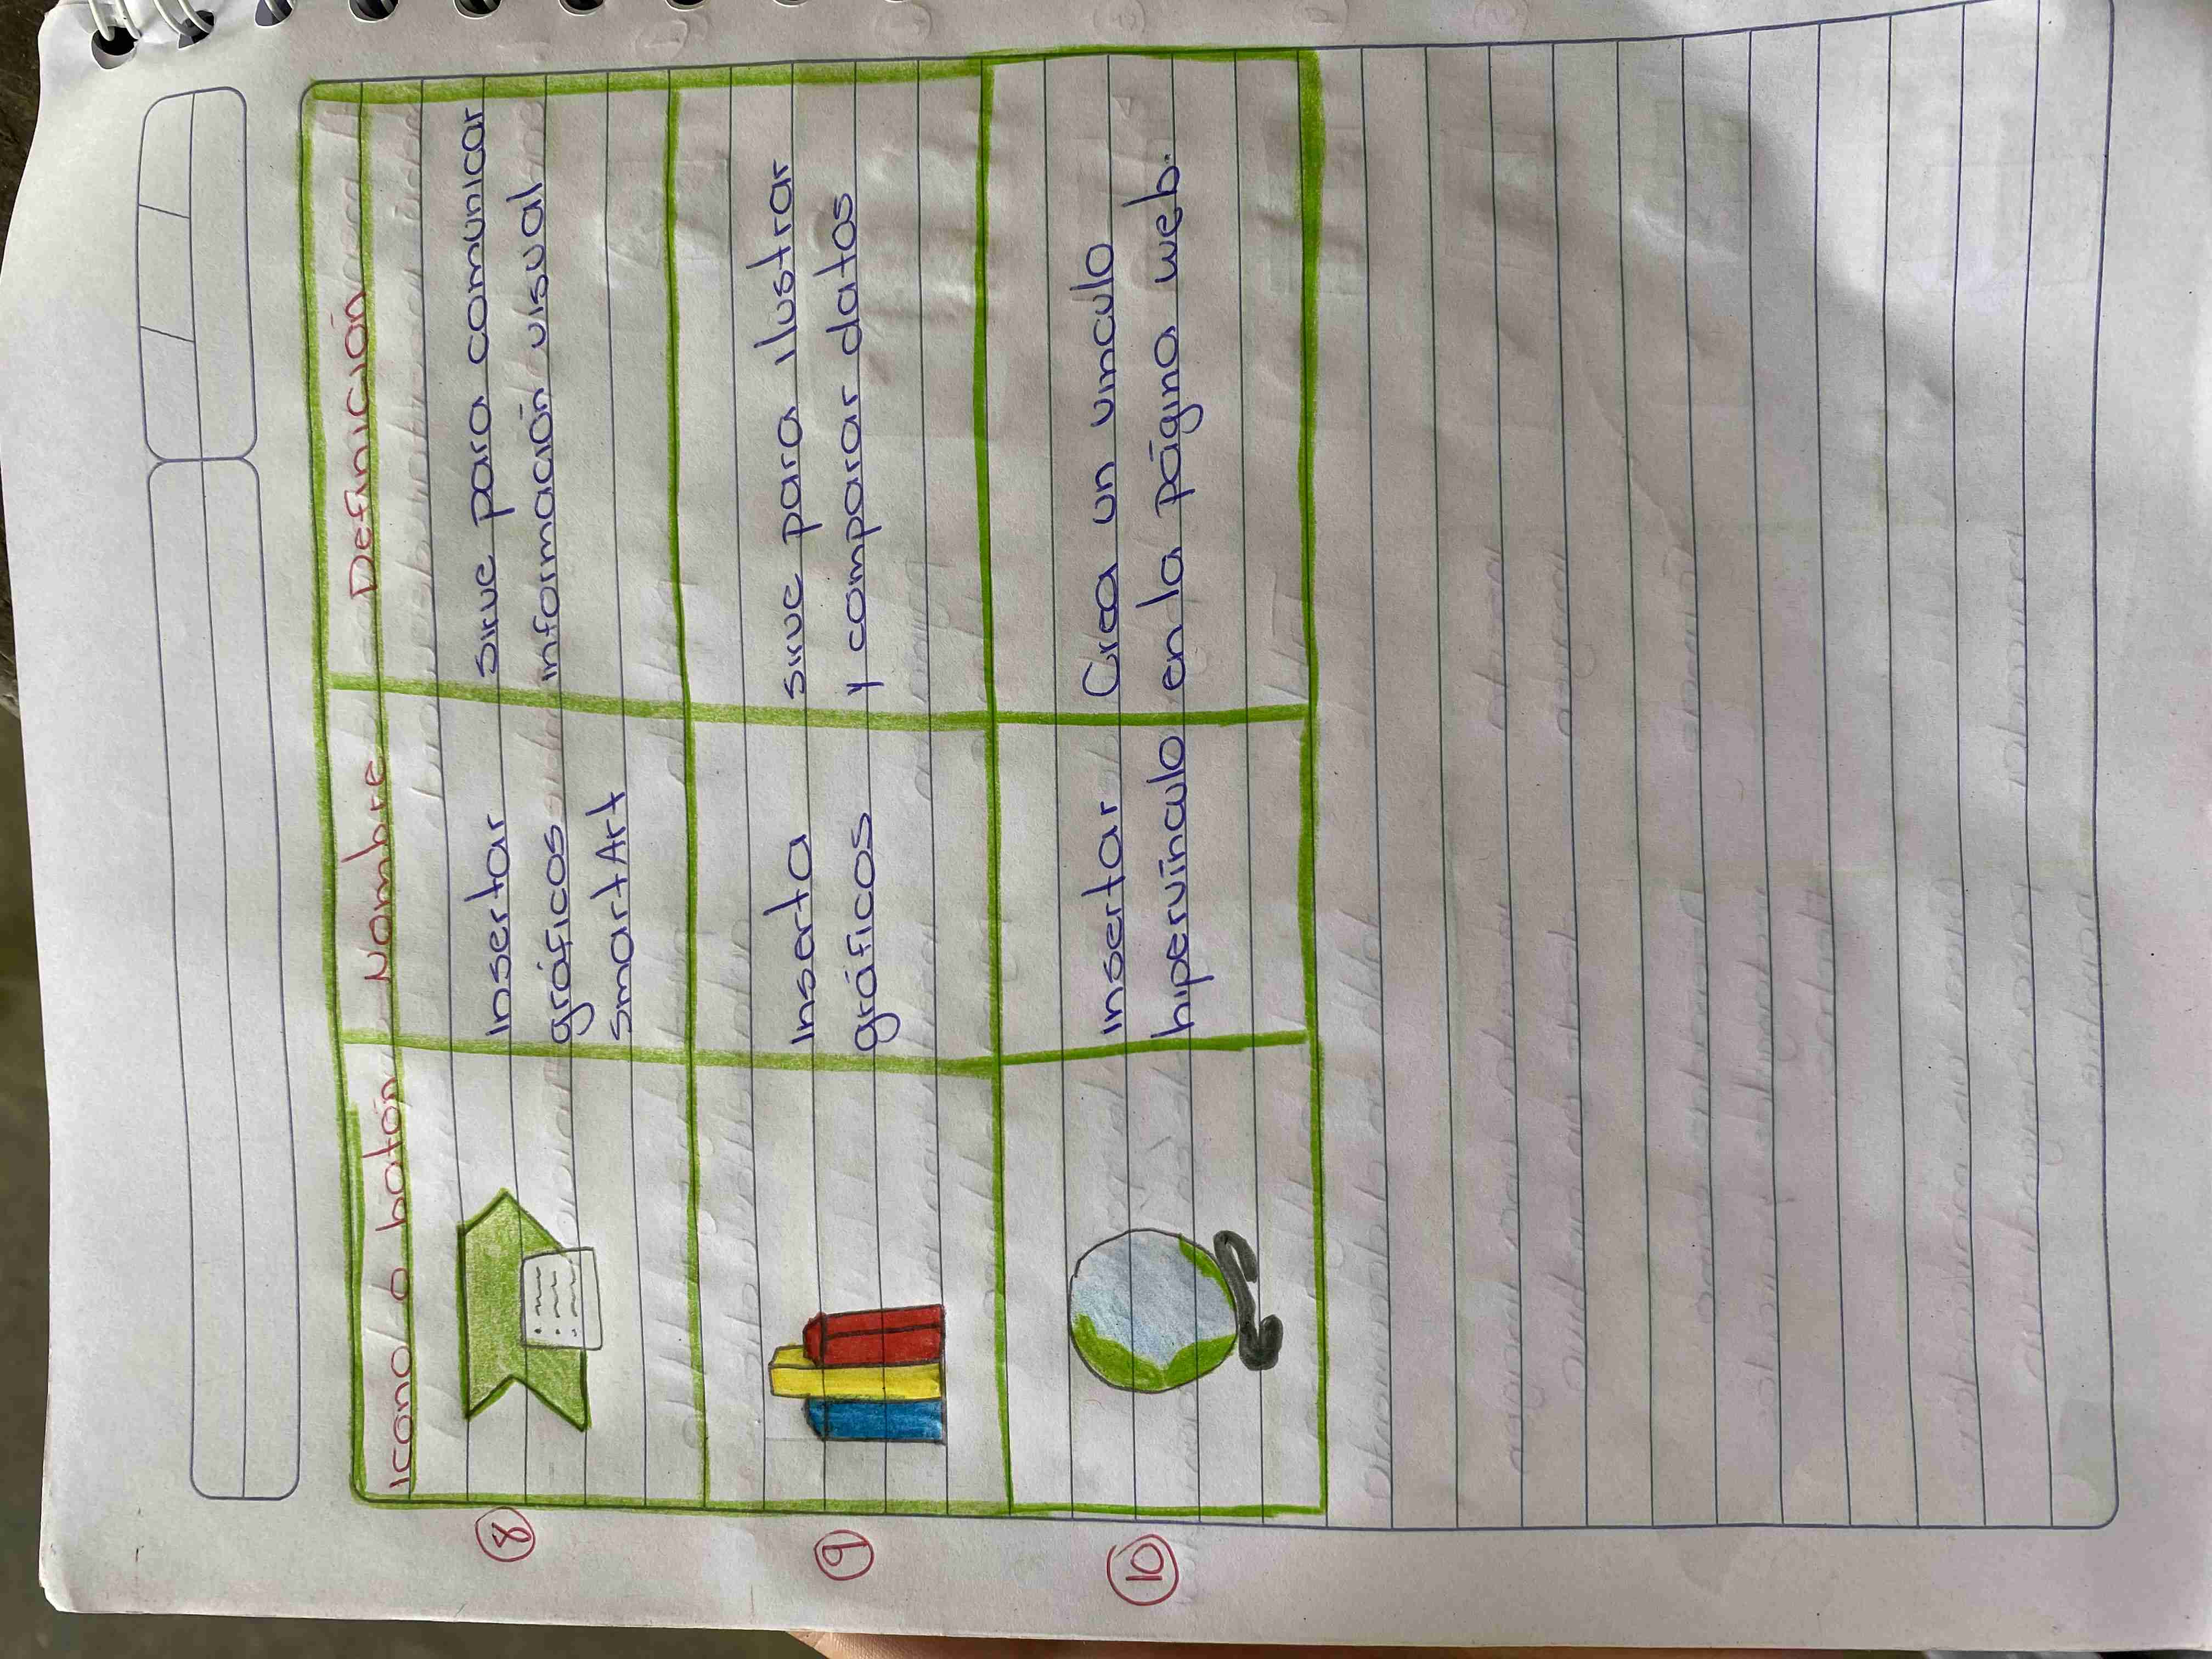 Icono o botón Nombre Definición
8
Insertar
gráficos
smartArt
sirve para comunicar
información visual
9
Inserta
gráficos
sirve para ilustrar
y comparar datos
10
Insertar
hipervínculo
Crea un vinculo
en la página web.